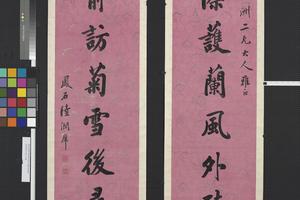 洲二兄大人雅正
護蘭風外
訪菊雪後
鳳石陸潤庠